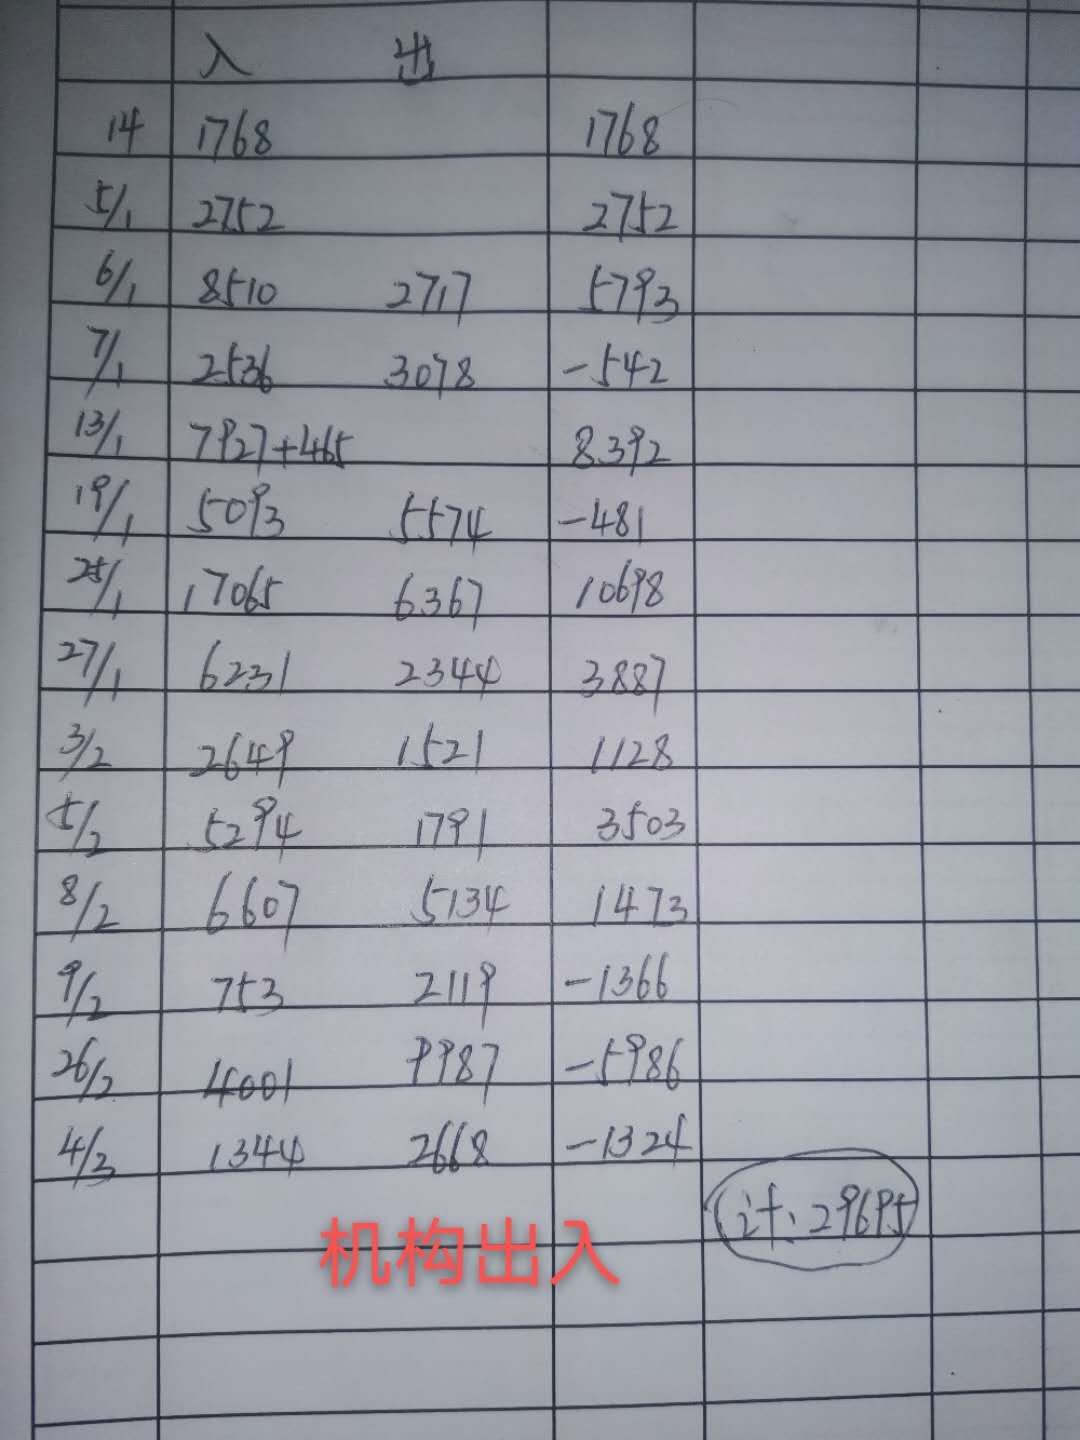 入 出
14 1768 1768
5/1 2752 2752
6/1 8510 2717 5793
7/1 2536 3078 -542
13/1 7927+465 8392
19/1 5093 5574 -481
25/1 17065 6367 10698
27/1 6231 2344 3887
3/2 2649 1521 1128
5/2 5294 1791 3503
8/2 6607 5134 1473
9/2 753 2119 -1366
26/2 4001 9987 -5986
4/3 1344 2668 -1324
计、29695
机构出入